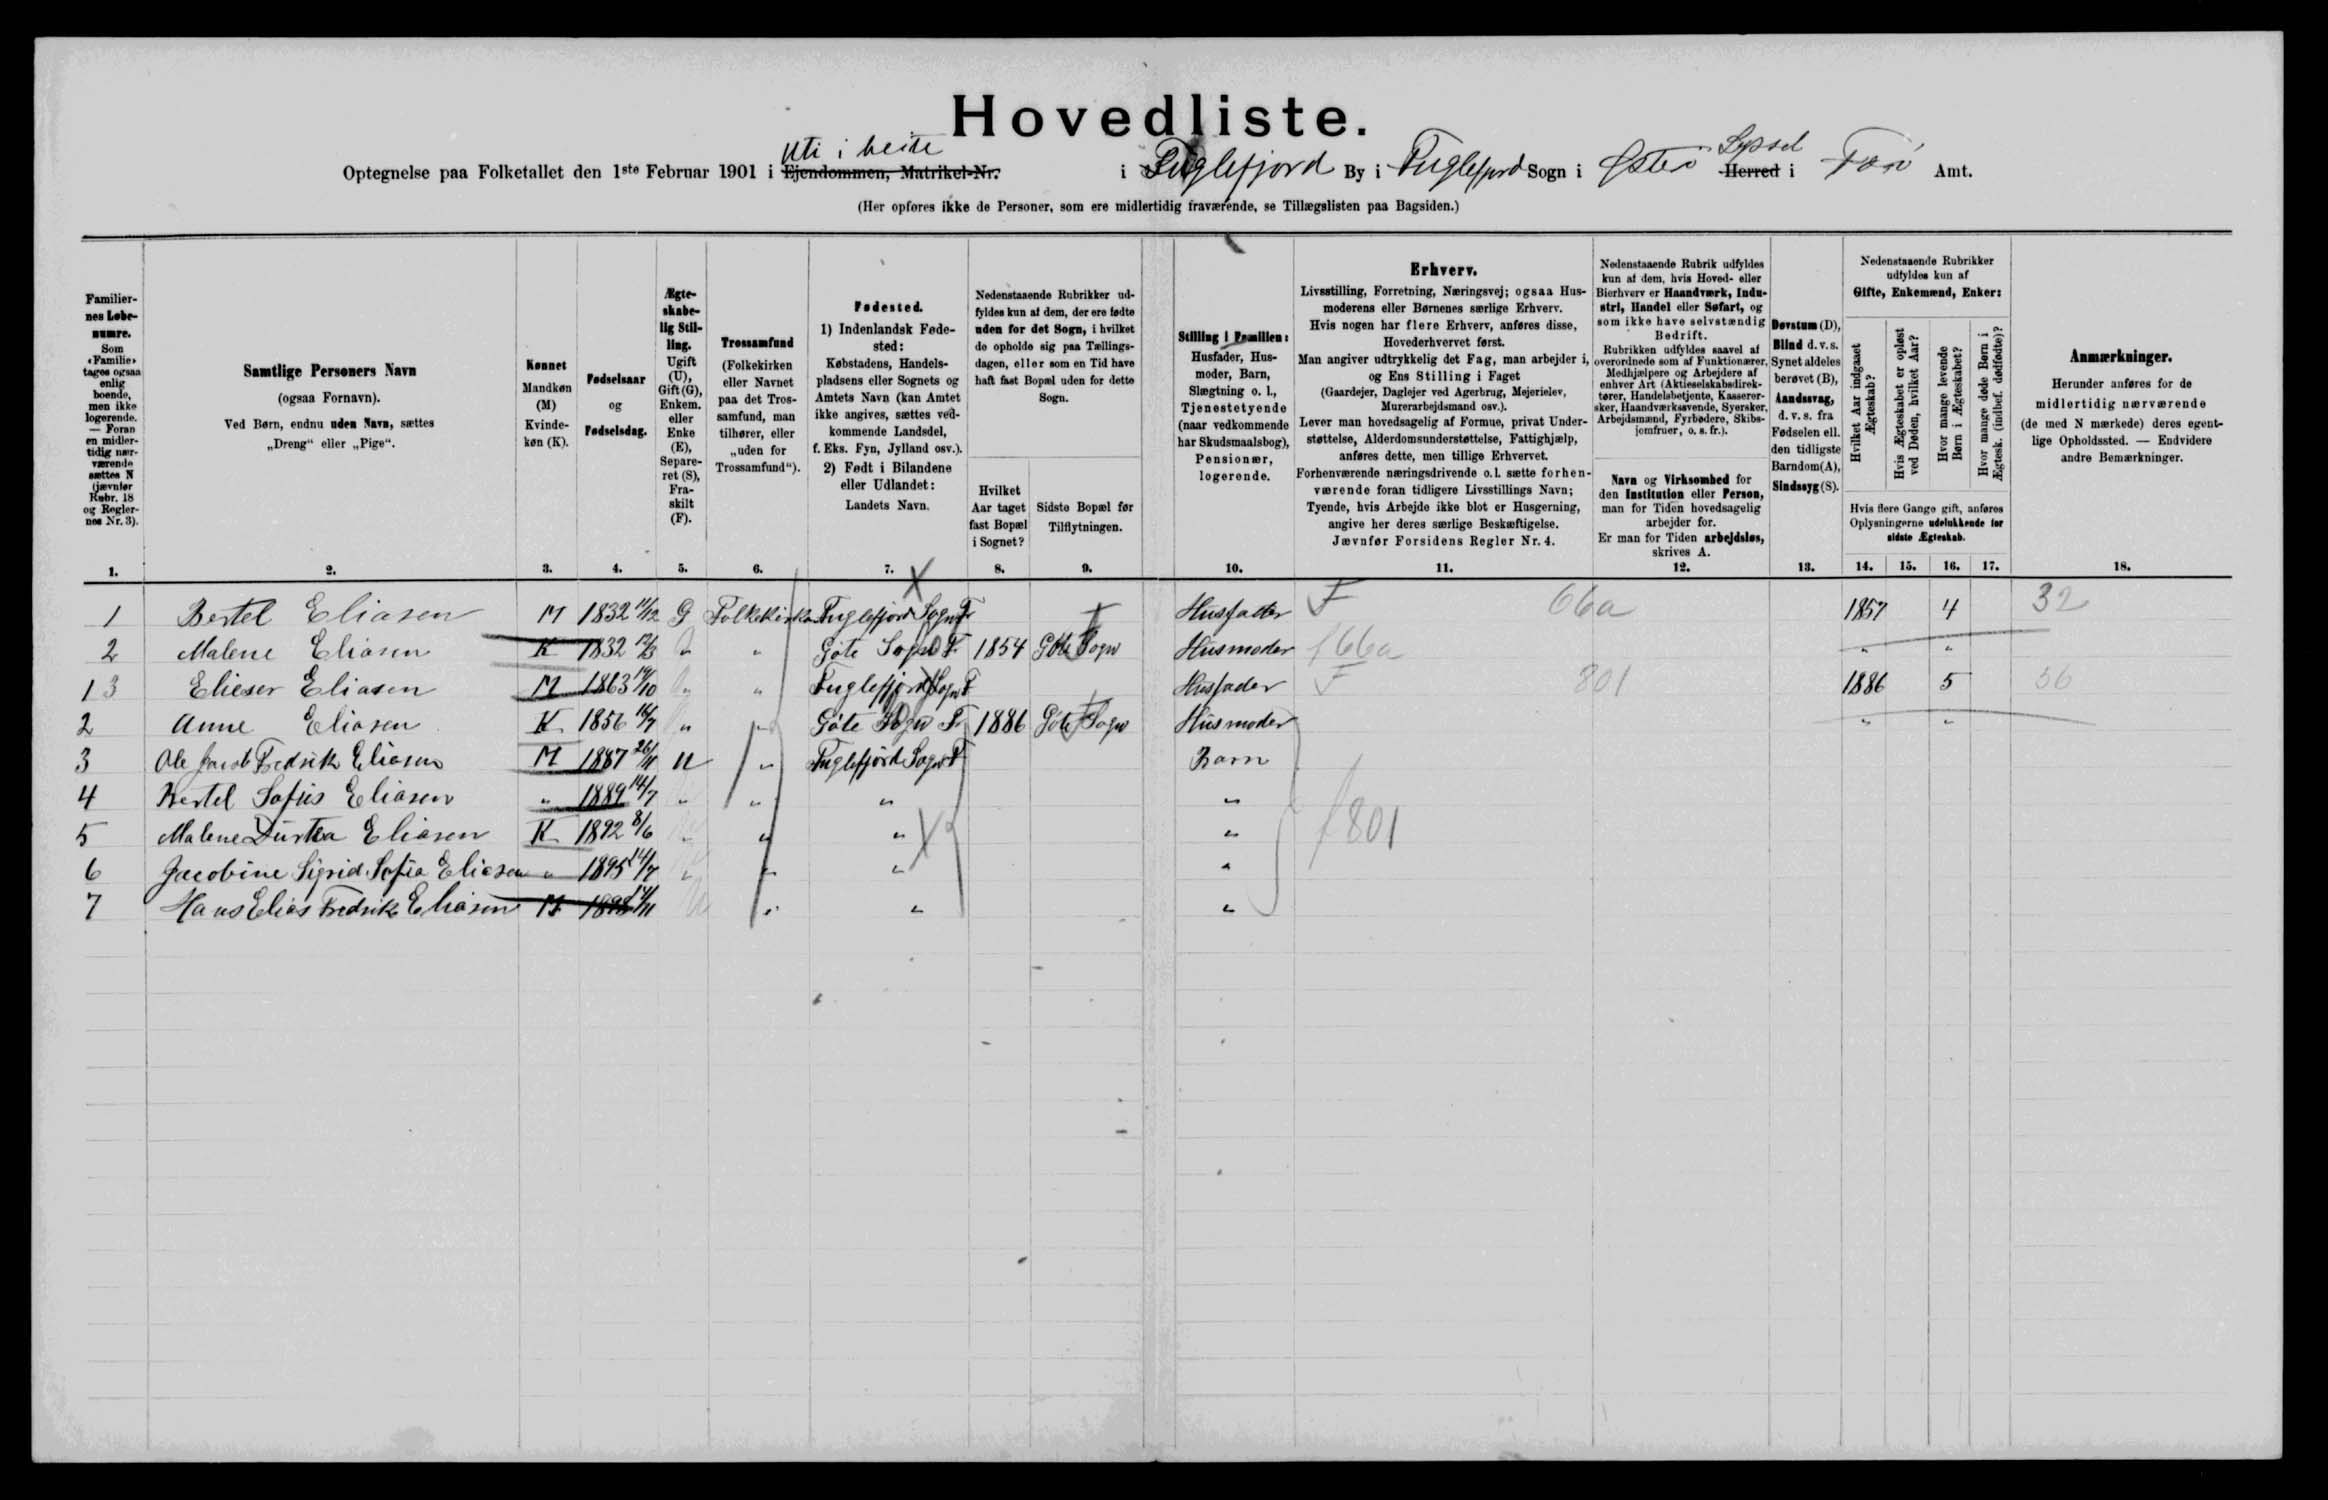 Hovedliste.
Uti i heite
Syssel
Optegnelse paa Folketallet den 1ste Februar 1901 i Ejendommen, Matrikel-Nr. i Fuglefjord By i Fuglefjord Sogn i Østerø Herred i Færø Amt.
(Her opføres ikke de Personer, som ere midlertidig fraværende, se Tillægslisten paa Bagsiden.)
Familiernes Løbenumre.
Som «Familie» tages ogsaa enlig boende, men ikke logerende. — Foran en midlertidig nærværende sættes N (jævnfør Rubr. 18 og Reglernes Nr. 3).
Samtlige Personers Navn
(ogsaa Fornavn).
Ved Børn, endnu uden Navn, sættes
„Dreng“ eller „Pige“.
Kønnet
Mandkøn (M)
Kvindekøn (K).
Fødselsaar
og
Fødselsdag.
Ægteskabelig Stilling.
Ugift (U), Gift (G), Enkem. eller Enke (E), Separeret (S), Fraskilt (F).
Trossamfund
(Folkekirken eller Navnet paa det Trossamfund, man tilhører, eller „uden for Trossamfund“).
Fødested.
1) Indenlandsk Fødested:
Købstadens, Handelspladsens eller Sognets og Amtets Navn (kan Amtet ikke angives, sættes vedkommende Landsdel, f. Eks. Fyn, Jylland osv.).
2) Født i Bilandene eller Udlandet:
Landets Navn.
Nedenstaaende Rubrikker udfyldes kun af dem, der ere fødte uden for det Sogn, i hvilket de opholde sig paa Tællingsdagen, eller som en Tid have haft fast Bopæl uden for dette Sogn.
Hvilket Aar taget fast Bopæl i Sognet?
Sidste Bopæl før Tilflytningen.
Stilling i Familien:
Husfader, Husmoder, Barn, Slægtning o. l., Tjenestetyende (naar vedkommende har Skudsmaalsbog), Pensionær, logerende.
Erhverv.
Livsstilling, Forretning, Næringsvej; ogsaa Husmoderens eller Børnenes særlige Erhverv.
Hvis nogen har flere Erhverv, anføres disse, Hovederhvervet først.
Man angiver udtrykkelig det Fag, man arbejder i, og Ens Stilling i Faget
(Gaardejer, Daglejer ved Agerbrug, Mejerielev, Murerarbejdsmand osv.).
Lever man hovedsagelig af Formue, privat Understøttelse, Alderdomsunderstøttelse, Fattighjælp, anføres dette, men tillige Erhvervet.
Forhenværende næringsdrivende o. l. sætte forhenværende foran tidligere Livsstillings Navn; Tyende, hvis Arbejde ikke blot er Husgerning, angive her deres særlige Beskæftigelse.
Jævnfør Forsidens Regler Nr. 4.
Nedenstaaende Rubrik udfyldes kun af dem, hvis Hoved- eller Bierhverv er Haandværk, Industri, Handel eller Søfart, og som ikke have selvstændig Bedrift.
Rubrikken udfyldes saavel af overordnede som af Funktionærer, Medhjælpere og Arbejdere af enhver Art (Aktieselskabsdirektører, Handelsbetjente, Kasserersker, Haandværkssvende, Syersker, Arbejdsmænd, Fyrbødere, Skibsjomfruer, o. s. fr.).
Navn og Virksomhed for den Institution eller Person, man for Tiden hovedsagelig arbejder for.
Er man for Tiden arbejdsløs, skrives A.
Døvstum (D), Blind d. v. s. Synet aldeles berøvet (B), Aandssvag, d. v. s. fra Fødselen ell. den tidligste Barndom (A), Sindssyg (S).
Nedenstaaende Rubrikker udfyldes kun af
Gifte, Enkemænd, Enker:
Hvilket Aar indgaaet Ægteskab?
Hvis Ægteskabet er opløst ved Døden, hvilket Aar?
Hvor mange levende Børn i Ægteskabet?
Hvor mange døde Børn i Ægtesk. (indbef. dødfødte)?
Hvis flere Gange gift, anføres Oplysningerne udelukkende for sidste Ægteskab.
Anmærkninger.
Herunder anføres for de midlertidig nærværende (de med N mærkede) deres egentlige Opholdssted. — Endvidere andre Bemærkninger.
1. 2. 3. 4. 5. 6. 7. 8. 9. 10. 11. 12. 13. 14. 15. 16. 17. 18.
1 Bertel Eliasen M 1832 11/12 G Folkekirken Fuglefjord Sogn Fr Husfader F 66a 1857 4 32
2 Malene Eliasen K 1832 12/3 " " Göte Sogn F 1854 Göte Sogn Husmoder f66a " "
1 3 Elieser Eliasen M 1863 14/10 " " Fuglefjord Sogn F Husfader F 801 1886 5 56
2 Anne Eliasen K 1856 14/7 " " Göte Sogn Fr 1886 Göte Sogn Husmoder " "
3 Ole Jacob Fredrik Eliasen M 1887 26/11 U " Fuglefjord Sogn F Barn
4 Bertel Sofus Eliasen " 1889 14/7 " " " "
5 Malene Durtea Eliasen K 1892 8/6 " " " " f801
6 Jacobine Sigrid Sofia Eliasen " 1895 14/7 " " " "
7 Hans Elias Fredrik Eliasen M 1898 14/11 " " "